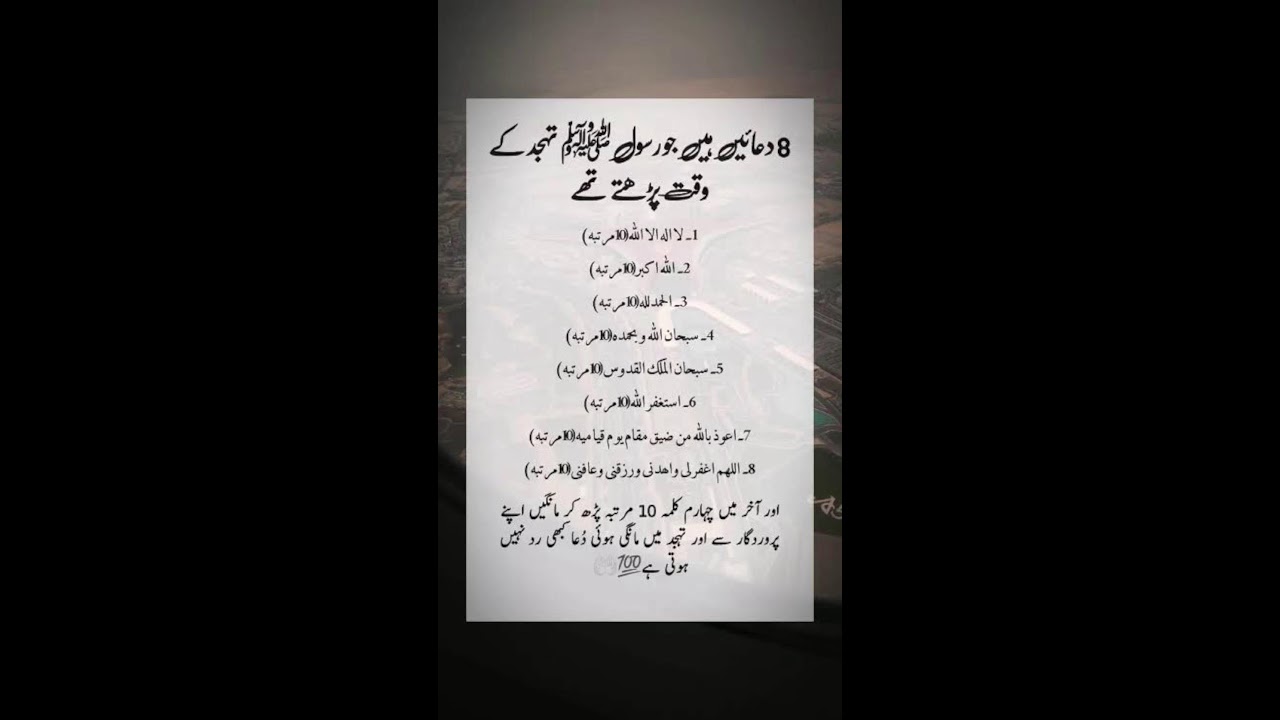 8 دعائیں ہیں جو رسول ﷺ تہجد کے
وقت پڑھتے تھے
1۔ لا اله الا الله (10مرتبہ)
2۔ الله اکبر (10مرتبہ)
3۔ الحمد لله (10مرتبہ)
4۔ سبحان الله و بحمدہ (10مرتبہ)
5۔ سبحان الملک القدوس (10مرتبہ)
6۔ استغفر الله (10مرتبہ)
7۔ اعوذ بالله من ضیق مقام یوم قیامیه (10مرتبہ)
8۔ اللهم اغفرلی واهدنی ورزقنی وعافنی (10مرتبہ)
اور آخر میں چہارم کلمہ 10 مرتبہ پڑھ کر مانگیں اپنے
پروردگار سے اور تہجد میں مانگی ہوئی دُعا کبھی رد نہیں
ہوتی ہے 💯